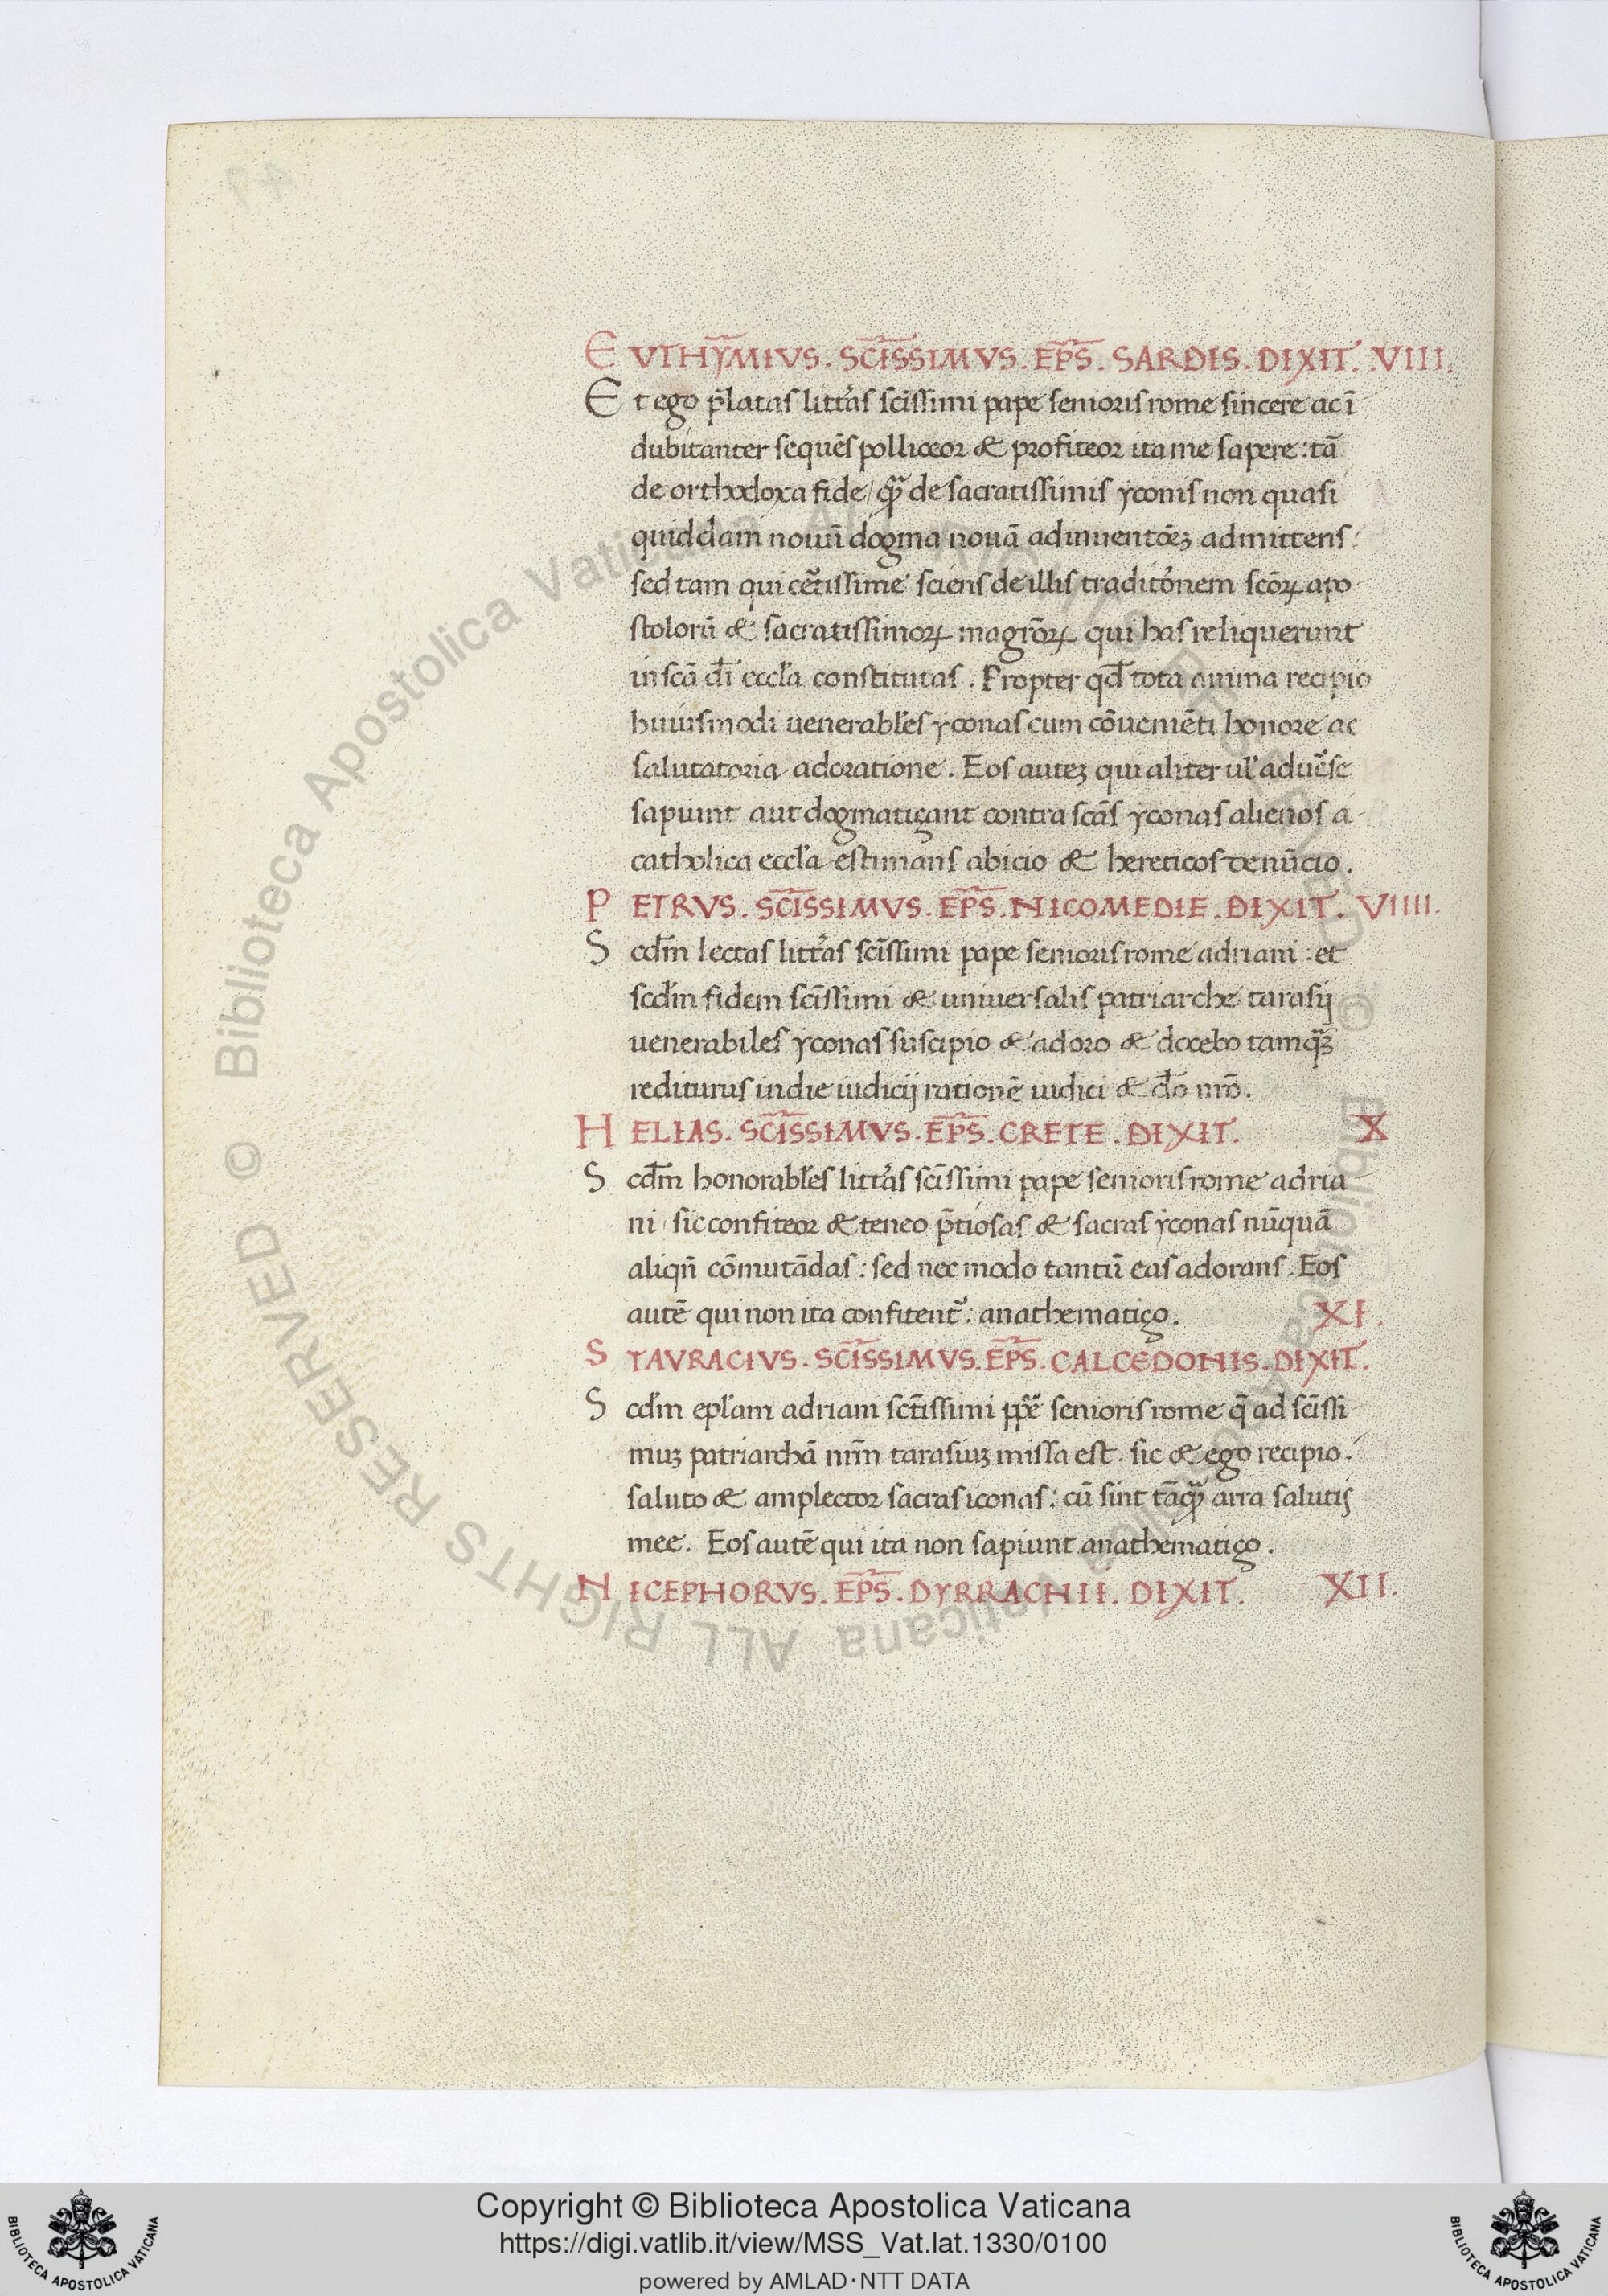 EVTHYMIVS. SC̄ISSIMVS. EP̄S. SARDIS. DIXIT. VIII.
Et ego p̄latas litt̓as sc̄issimi pape senioris rome sincere ac ī
dubitanter sequēs polliceor & profiteor ita me sapere: tā
de orthodoxa fide / qꝫ̄ de sacratissimis yconis non quasi
quiddam nouū dogma nouā adinuentōeꝫ admittens:
sed tam qui cētissime sciens de illis traditōnem scōꝝ apo
stolorū & sacratissimoꝝ magrōꝝ qui has reliquerunt
in scā dī eccl̄a constitutas. Propter qd̄ tota anima recipio
huiusmodi uenerabl̄es yconas cum cōueniēti honore ac
salutatoria adoratione. Eos auteꝫ qui aliter ul̓ aduēse
sapiunt aut dogmatiçant contra scās yconas alienos a
catholica eccl̄a estimans abicio & hereticos denūcio.
PETRVS. SC̄ISSIMVS. EP̄S. NICOMEDIE. DIXIT. VIIII.
Scd̄m lectas litt̓as sc̄issimi pape senioris rome adriani: et
scd̄m fidem sc̄issimi & uniuersalis patriarche tarasij
uenerabiles yconas suscipio & adoro & docebo tamqꝫ̄
rediturus in die iudicij rationē iudici & dō nrō.
HELIAS. SC̄ISSIMVS. EP̄S. CRETE. DIXIT. X
Scd̄m honorabl̄es litt̓as sc̄issimi pape senioris rome adria
ni / sic confiteor & teneo p̄tiosas & sacras yconas nūquā
aliqn̄ cōmutādas: sed nec modo tantū eas adorans. Eos
autē qui non ita confitent̓: anathematiço. XI.
STAVRACIVS. SC̄ISSIMVS. EP̄S. CALCEDONIS. DIXIT.
Scd̄m epl̄am adriani sc̄tissimi pp̄e senioris rome q̄ ad sc̄issi
muꝫ patriarchā nr̄m tarasiuꝫ missa est. sic & ego recipio.
saluto & amplector sacras iconas: cū sint tāqꝫ̄ arra salutis
mee. Eos autē qui ita non sapiunt anathematiço.
NICEPHORVS. EP̄S. DYRRACHII. DIXIT. XII.
© Biblioteca Apostolica Vaticana ALL RIGHTS RESERVED © Biblioteca Apostolica Vaticana ALL RIGHTS RESERVED
Copyright © Biblioteca Apostolica Vaticana
https://digi.vatlib.it/view/MSS_Vat.lat.1330/0100
powered by AMLAD・NTT DATA
BIBLIOTECA APOSTOLICA VATICANA
BIBLIOTECA APOSTOLICA VATICANA